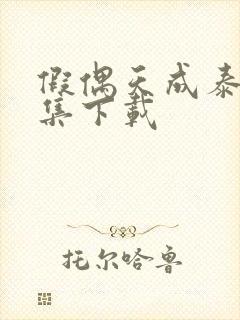 假偶天成泰
集下载
托尔哈鲁